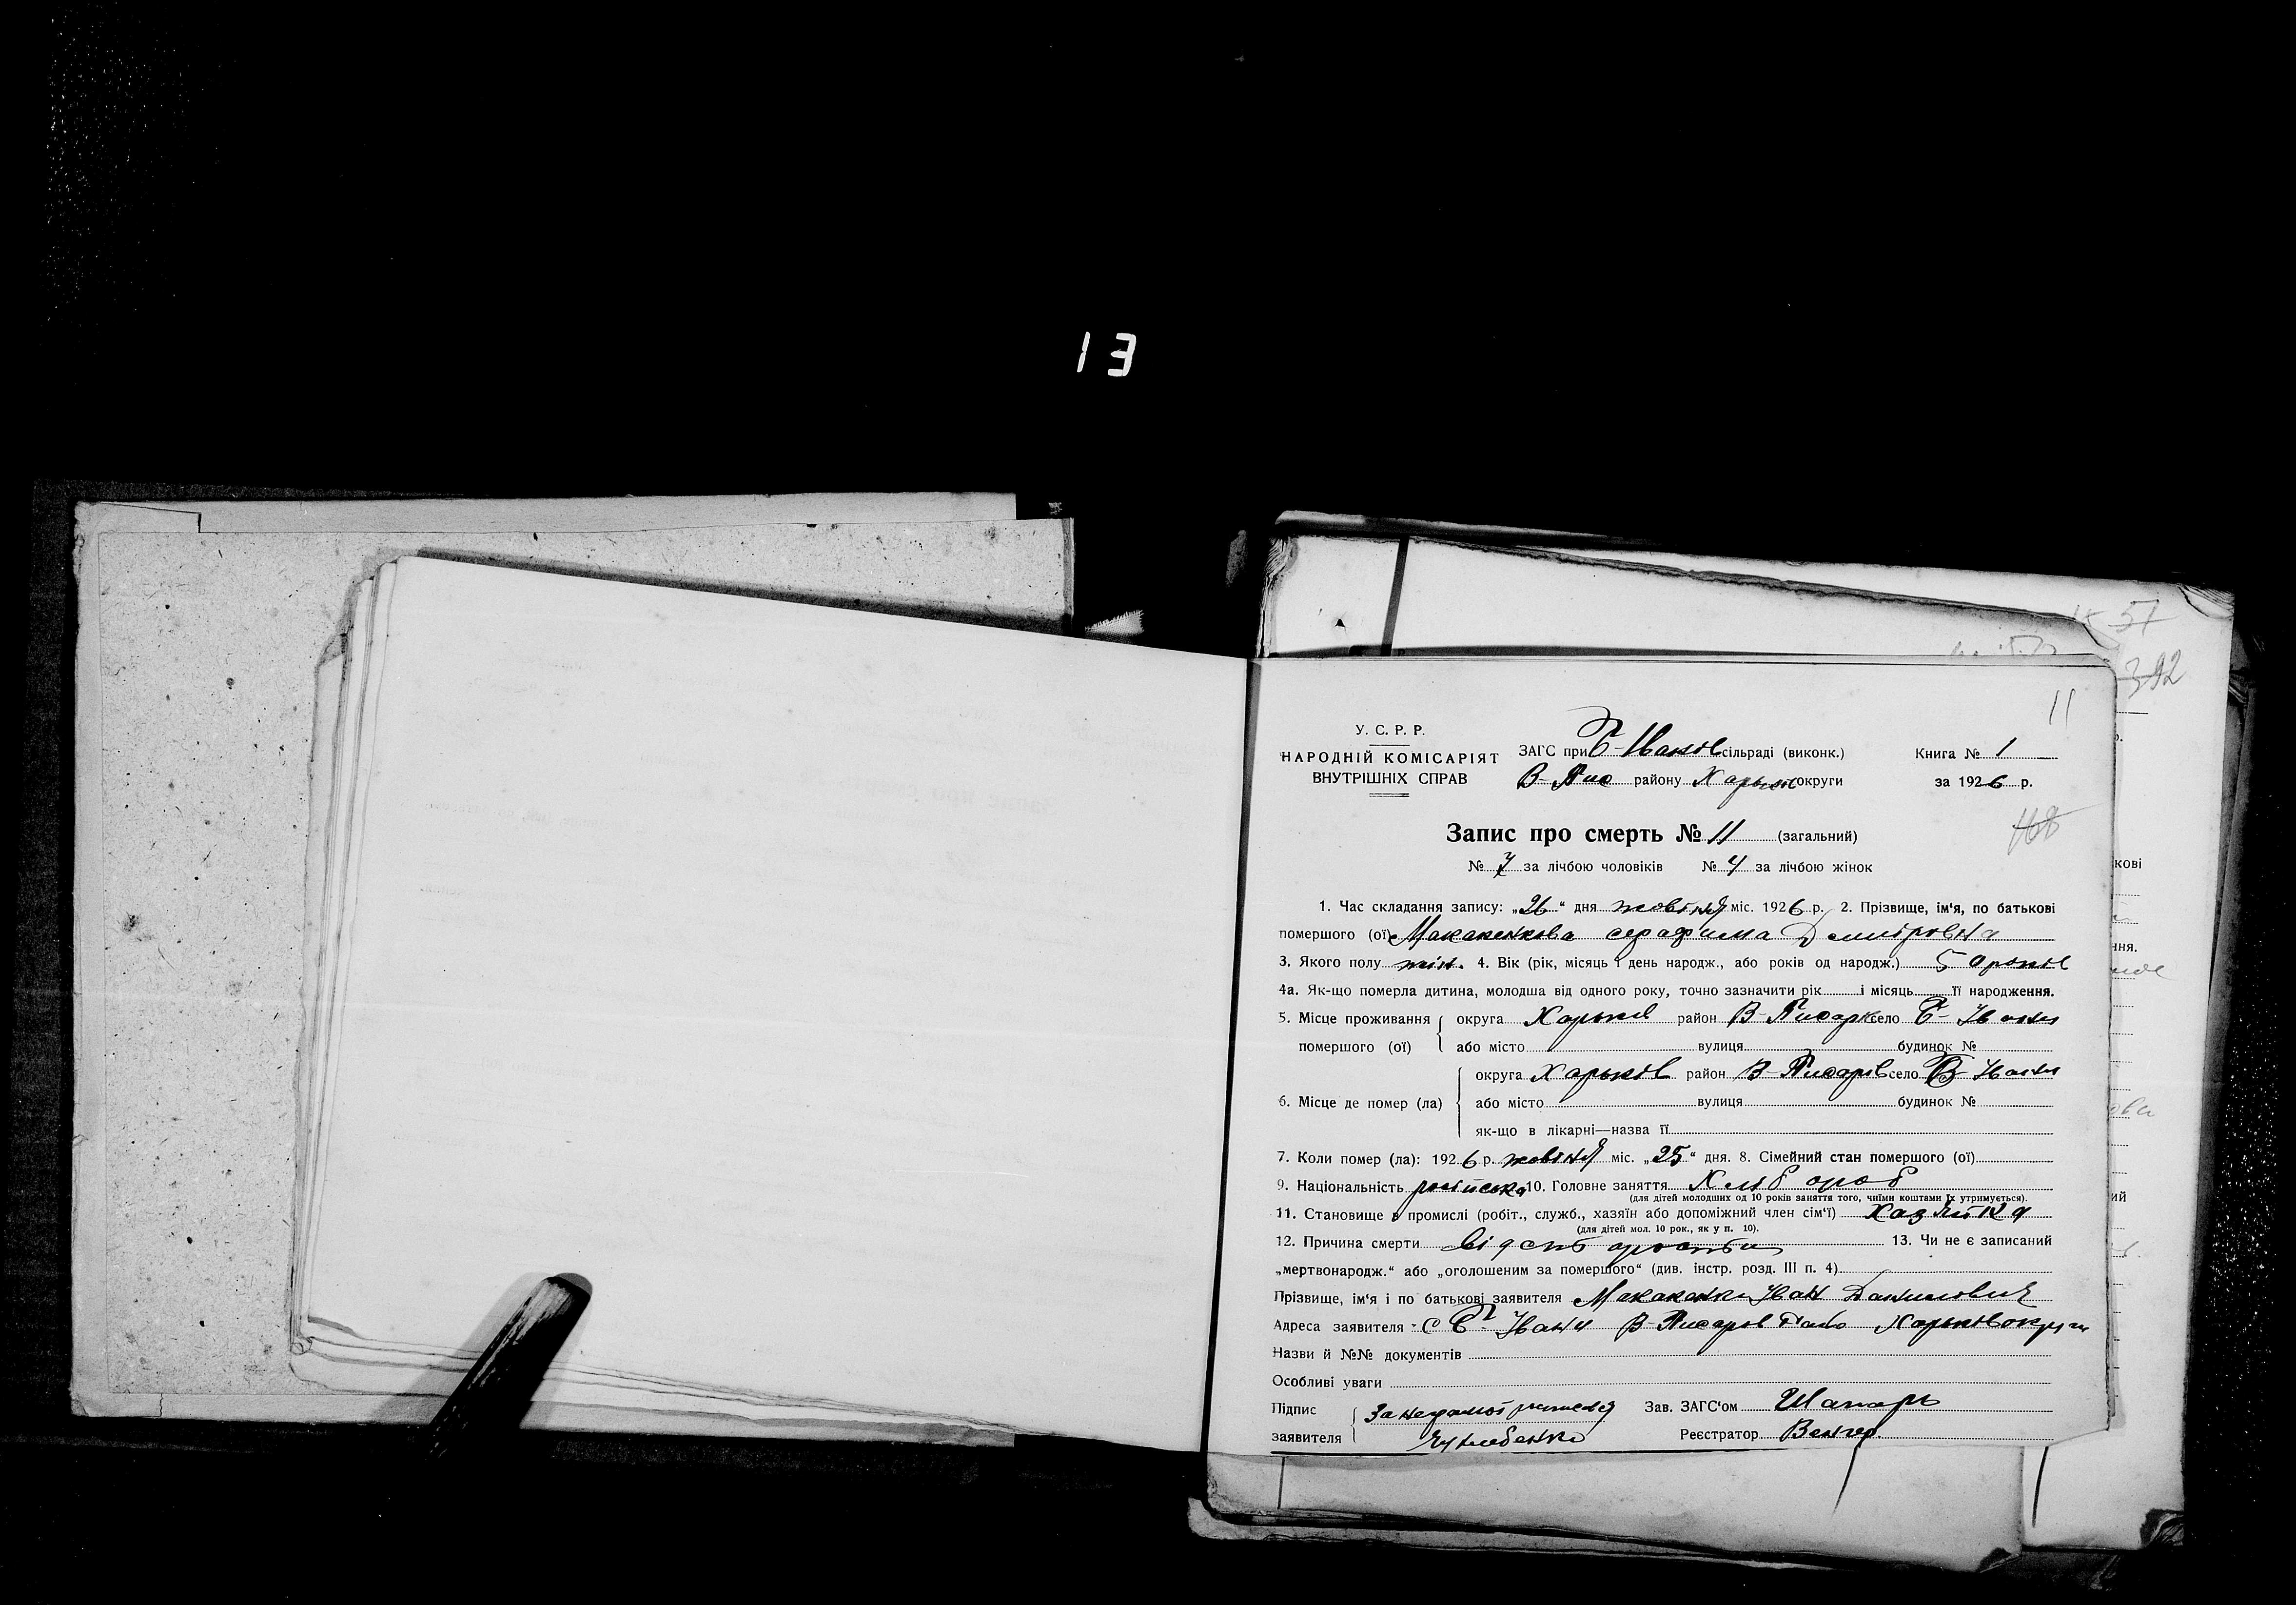 13
57
392
11
У. С. Р. Р.
НАРОДНІЙ КОМІСАРІЯТ
ВНУТРІШНІХ СПРАВ
ЗАГС при Б-Иванів сільраді (виконк.)
Книга № 1
В-Пис району Харьків округи
за 1926 р.
168
Запис про смерть № 11 (загальний)
№ 7 за лічбою чоловіків № 4 за лічбою жінок
1. Час складання запису: „26“ дня жовтня міс. 1926 р. 2. Прізвище, ім‘я, по батькові
помершого (ої) Макаженкова серафима Дмитровна
3. Якого полу жін. 4. Вік (рік, місяць і день народж., або років од народж.) років
4а. Як-що померла дитина, молодша від одного року, точно зазначити рік і місяць її народження.
5. Місце проживання помершого (ої)
округа Харьків район В-Писар село Б-Ивани
або місто вулиця будинок №
6. Місце де помер (ла)
округа Харьків район В-Писарів село Ивани
або місто вулиця будинок №
як-що в лікарні—назва її
7. Коли помер (ла): 1926 р. жовтня міс. „25“ дня. 8. Сімейний стан помершого (ої)
9. Національність російска 10. Головне заняття Хлібороб
(для дітей молодших од 10 років заняття того, чиїми коштами їх утримується).
11. Становище в промислі (робіт., служб., хазяїн або допоміжний член сім‘ї) Хазяйка
(для дітей мол. 10 рок., як у п. 10).
12. Причина смерти від старости 13. Чи не є записаний
„мертвонародж.“ або „оголошеним за помершого“ (див. інстр. розд. III п. 4)
Прізвище, ім‘я і по батькові заявителя Иван Данилович
Адреса заявителя с Б-Ивани В-Писарів Харьків округи
Назви й №№ документів
Особливі уваги
Підпис заявителя
За
Зав. ЗАГС‘ом Шапарь
Реєстратор Венгер.